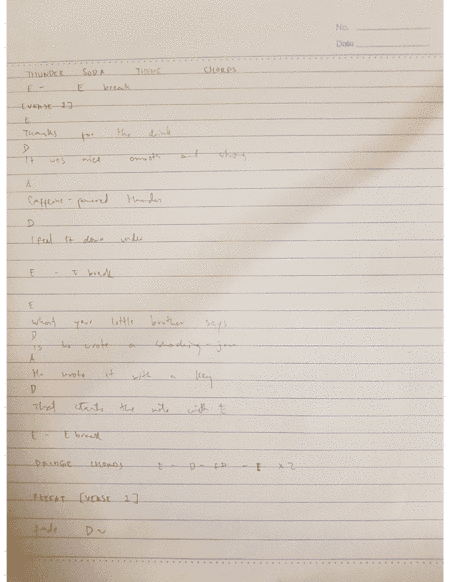 No.
Date
THUNDER SODA TITLE CHORDS
E - E break
[VERSE 1]
E
Thanks for the drink
D
It was nice smooth and
A
Caffeine-powered thunder
D
I feel it down under
E - E break
E
What your little brother says
D
Is he wrote a -jam
A
He wrote it with a key
D
That starts the note with E
E - E break
CHORDS E - D - - E x2
REPEAT [VERSE 1]
fade D~